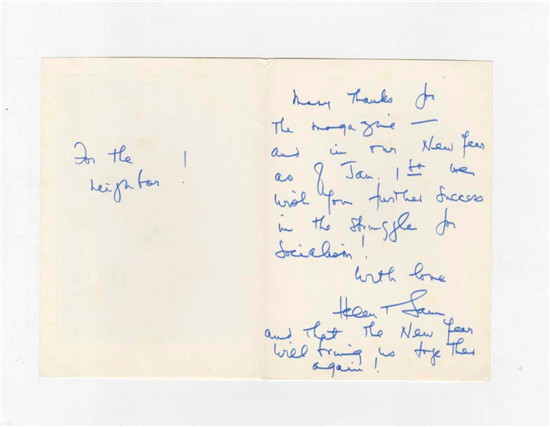 For the !
neighbor
Many Thanks for
the magazine —
and in our New Year
as of Jan. 1st we
wish you further success
in the struggle for
Socialism!
With love
Helen + Sam
and that the New Year
will bring us together
again!